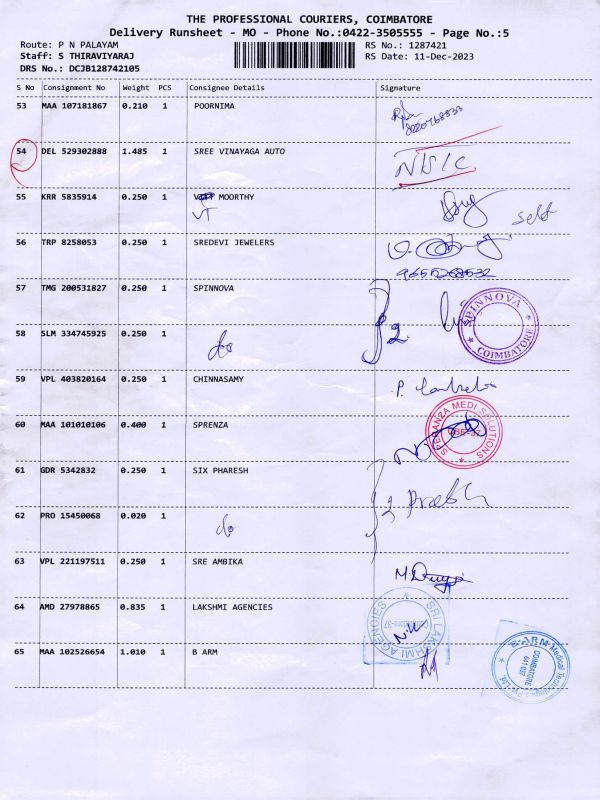 THE PROFESSIONAL COURIERS, COIMBATORE
Delivery Runsheet - MO - Phone No.:0422-3505555 - Page No.:5
Route: P N PALAYAM RS No.: 1287421
Staff: S THIRAVIYARAJ RS Date: 11-Dec-2023
DRS No.: DCJB128742105
S No Consignment No Weight PCS Consignee Details Signature
53 MAA 107181867 0.210 1 POORNIMA
54 DEL 529302888 1.485 1 SREE VINAYAGA AUTO
NSIC
55 KRR 5835914 0.250 1 MOORTHY
VT
self
56 TRP 8258053 0.250 1 SREDEVI JEWELERS
57 TMG 200531827 0.250 1 SPINNOVA
SPINNOVA
COIMBATORE
2
58 SLM 334745925 0.250 1
do
59 VPL 403820164 0.250 1 CHINNASAMY
60 MAA 101010106 0.400 1 SPRENZA
SPERANZA MEDI SOLUTIONS
61 GDR 5342832 0.250 1 SIX PHARESH
2
62 PRO 15450068 0.020 1
do
63 VPL 221197511 0.250 1 SRE AMBIKA
64 AMD 27978865 0.835 1 LAKSHMI AGENCIES
SRI LAKSHMI AGENCIES
Coimbatore-37
65 MAA 102526654 1.010 1 B ARM
COIMBATORE
641 037